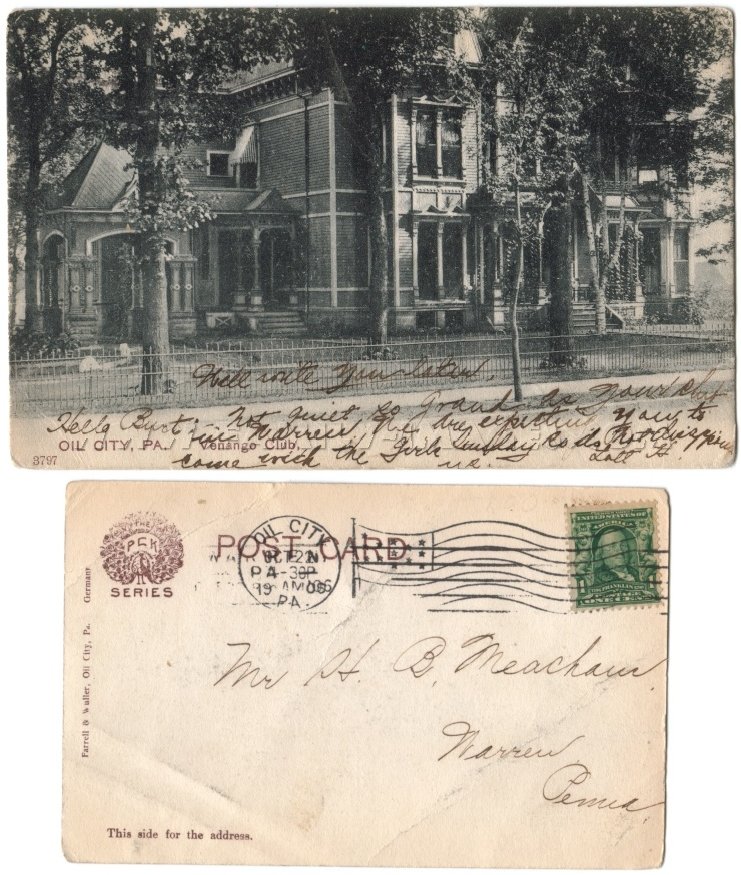 Will write you later.
Hello Burt. Not quiet so Grand as your club
OIL CITY, PA. Venango Club,
in Warren. We are expecting you to
come with the Girls Sunday so do not disappoint
us. Lott H
3797
THE
P F K
SERIES
POST CARD
OIL CITY
4-30P
PA.
UNITED STATES OF AMERICA
FRANKLIN
POSTAGE
ONE CENT
Mr H. B. Meacham.
Warren
Penna.
Farrell & Waller, Oil City, Pa. Germany
This side for the address.